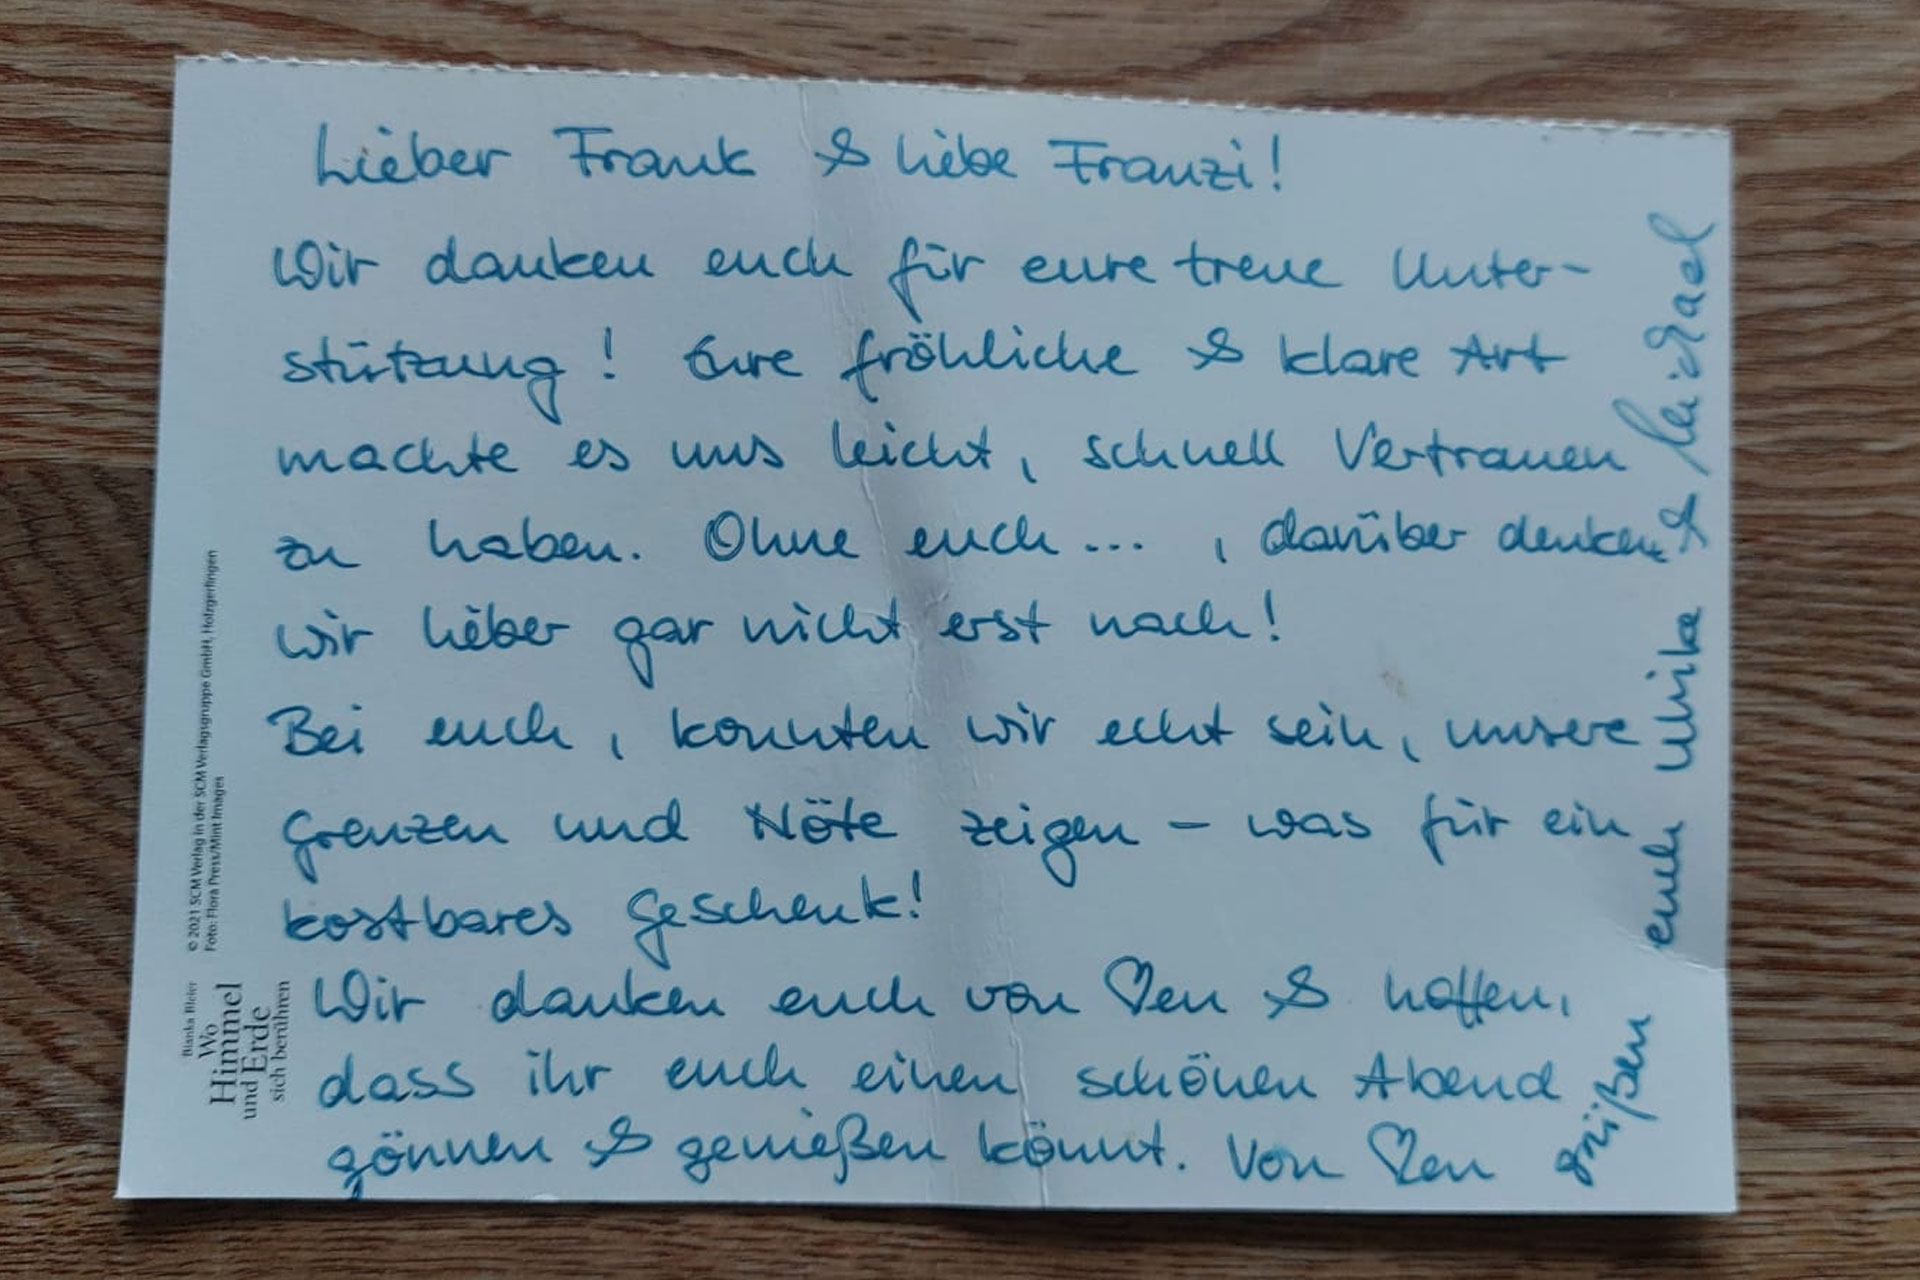 Lieber Frank & liebe Franzi!
Wir danken euch für eure treue Unter-
stützung! Eure fröhliche & klare Art
machte es uns leicht, schnell Vertrauen
zu haben. Ohne euch ... , darüber denken
wir lieber gar nicht erst nach!
Bei euch, konnten wir echt sein, unsere
Grenzen und Nöte zeigen – was für ein
kostbares Geschenk!
Wir danken euch von ♡en & hoffen,
dass ihr euch einen schönen Abend
gönnen & genießen könnt. Von ♡en
grüßen euch Ulrike & Michael
© 2021 SCM Verlag in der SCM Verlagsgruppe GmbH, Holzgerlingen
Foto: Flora Press/Mint Images
Bianka Bleier
Wo
Himmel
und Erde
sich berühren